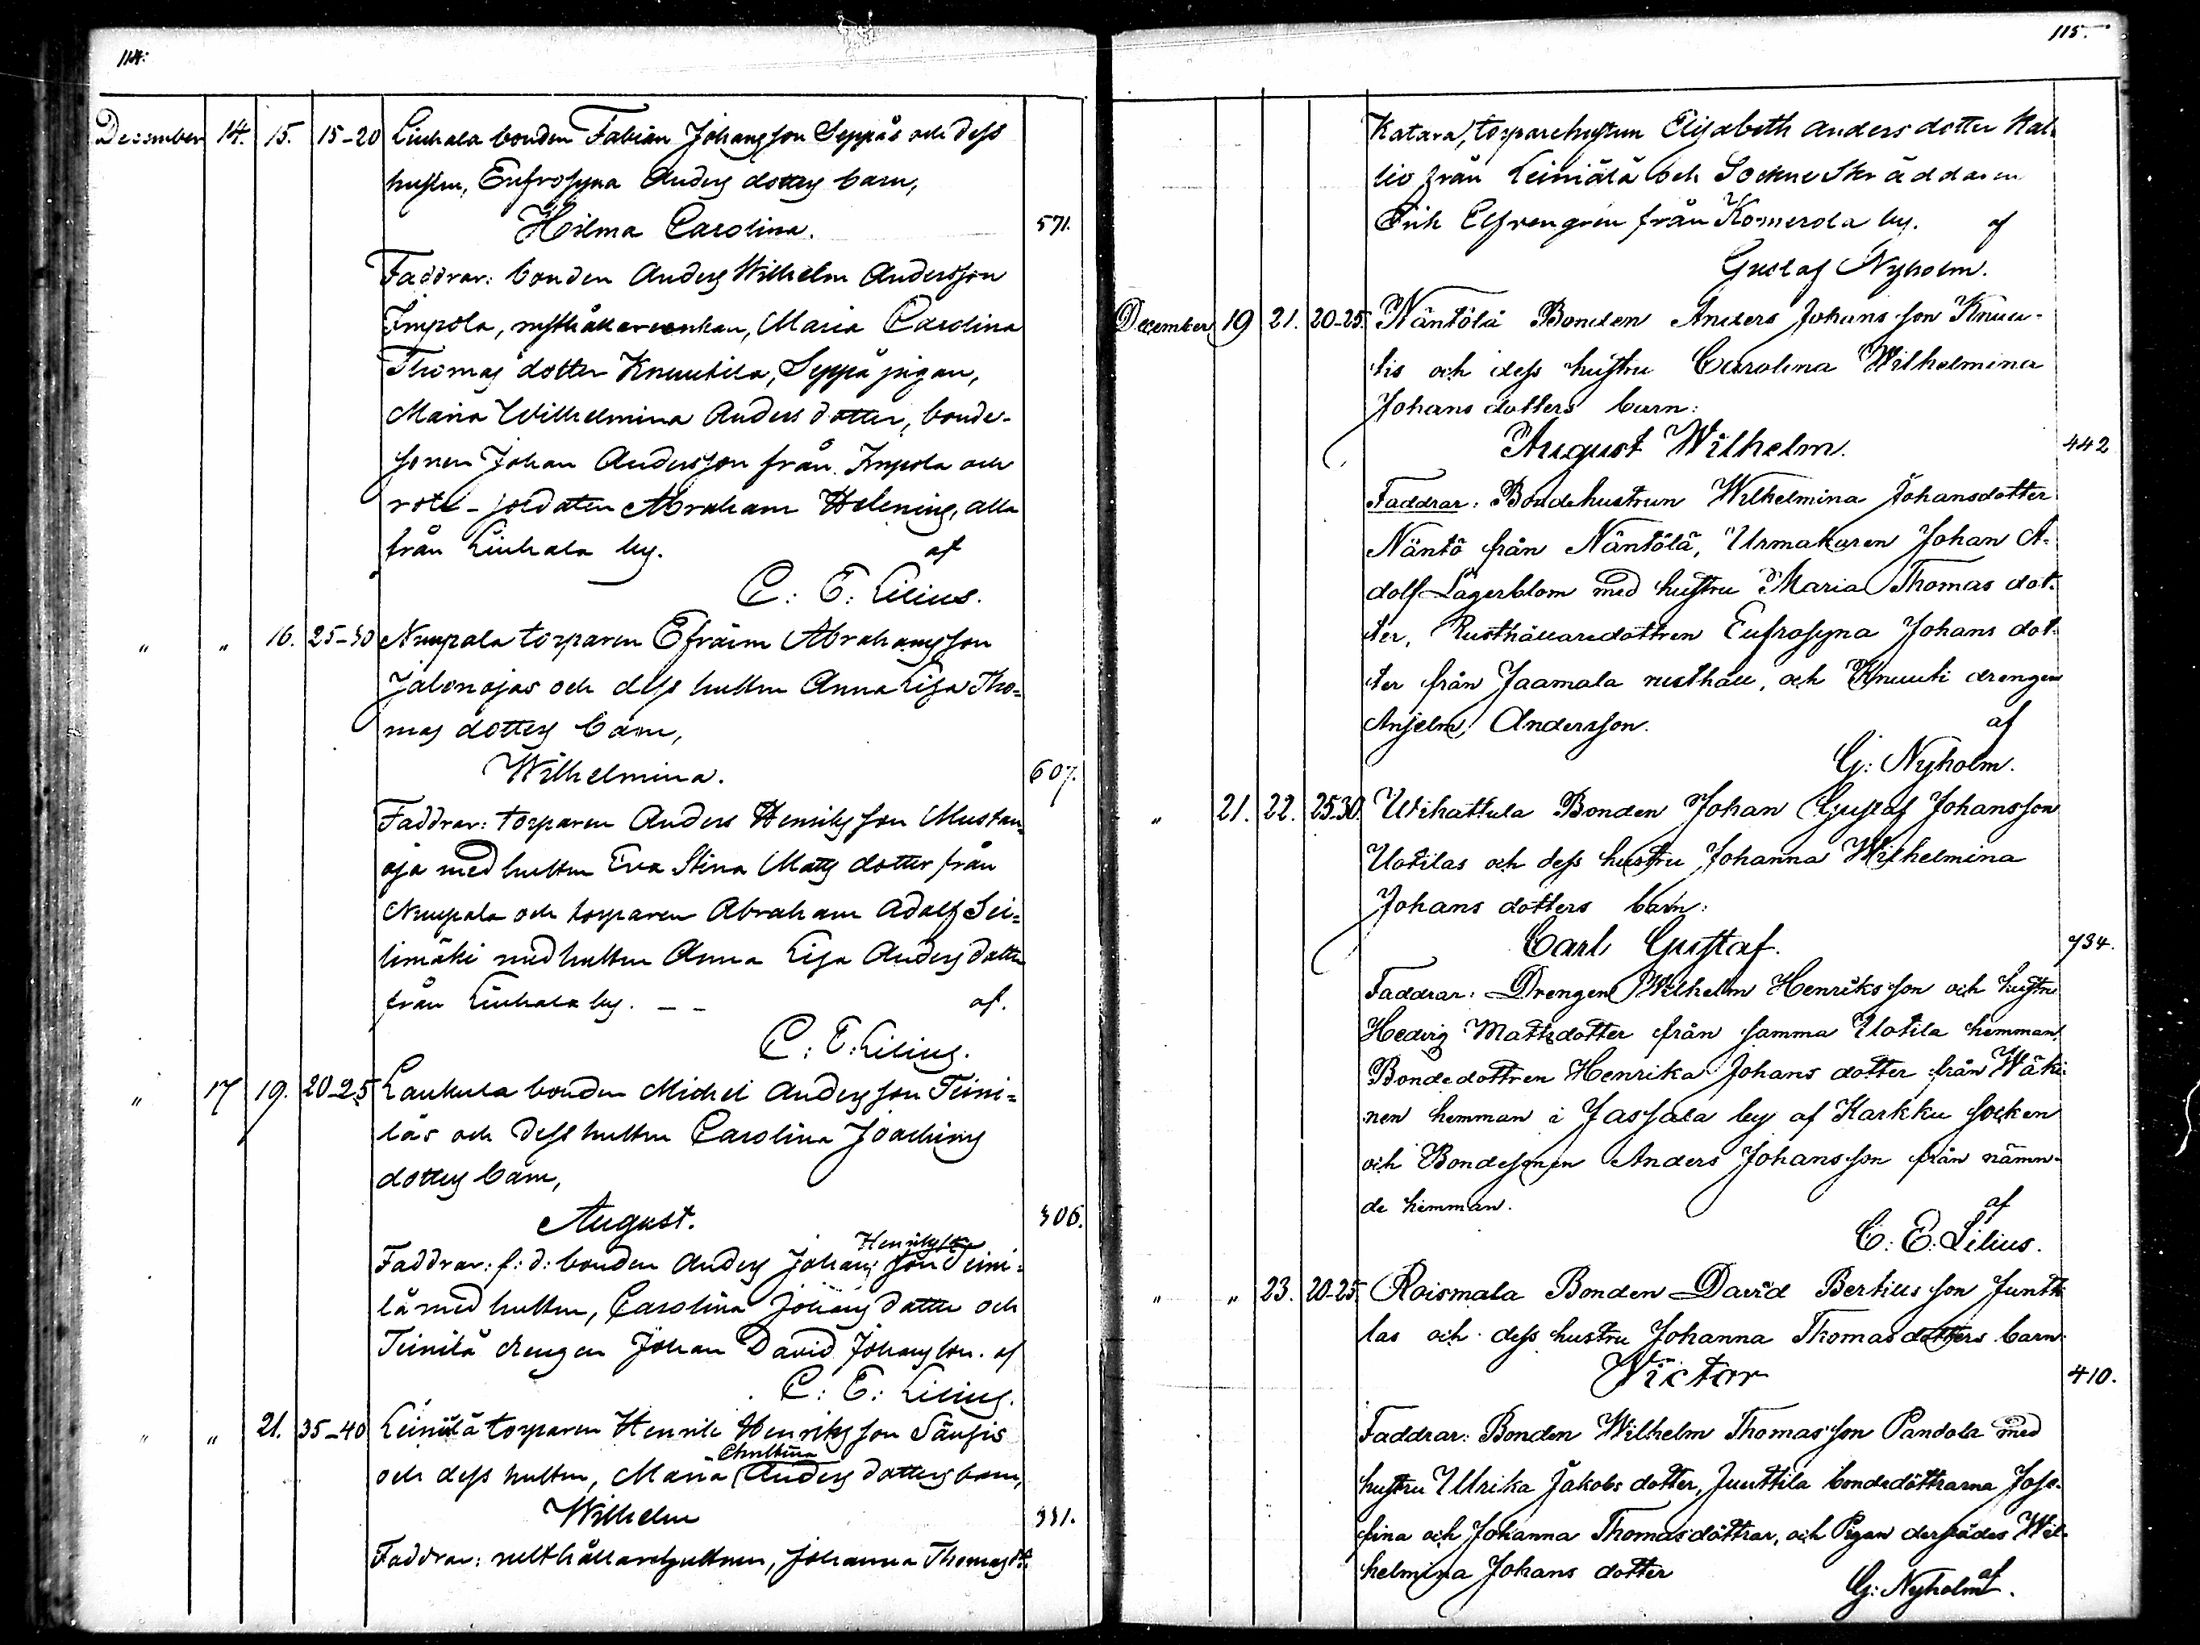 114.
December 14. 15. 15-20 Liuhala bonden Fabian Johansson Seppäs och dess
hustru, Eufrosyna Anders dotters barn,
Hilma Carolina. 571.
Faddrar: bonden Anders Wilhelm Andersson
Impola, rusthållareenkan, Maria Carolina
Thomas dotter Knuutila, Seppä pigan,
Maria Wilhelmina Anders dotter, bonde-
sonen Johan Andersson från Impola och
rote-soldaten Abraham Helening, alla
från Liuhala by. af
C: E: Lilius.
" " 16. 25-30 Nuupala torparen Efraim Abrahamsson
Jalonojas och dess hustru Anna Lisa Tho=
mas dotters barn,
Wilhelmina. 607.
Faddrar: torparen Anders Henriksson Mustan=
oja med hustru Eva Stina Matts dotter från
Nuupala och torparen Abraham Adolf Sei=
limäki med hustru Anna Lisa Anders dotter
från Liuhala by. - - af.
C: E: Lilius.
" 17 19. 20-25 Laukula bonden Michel Andersson Teini=
läs och dess hustru Carolina Joachims
dotters barn,
August. 306.
Henriksson
Faddrar: f: d: bonden Anders Johans son Teini=
lä med hustru, Carolina Johans dotter och
Teinilä drengen Johan David Johansson. af
C: E: Lilius.
" " 21. 35-40 Leiniälä torparen Henrik Henriksson Säufis
Christina
och dess hustru, Maria Anders dotters barn,
Wilhelm 331.
Faddrar: rusthållarehustrun, Johanna Thomas dr.
115.
Katara, torparehustrun Elisabeth Anders dotter Kal=
lio från Leiniälä och Sockne Skräddaren
Erik Elfvengren från Komerola by. af
Gustaf Nyholm.
December 19 21. 20-25. Näntölä Bonden Anders Johansson Knuu-
tis och dess hustru Carolina Wilhelmina
Johans dotters barn:
August Wilhelm. 442
Faddrar: Bondehustrun Wilhelmina Johansdotter
Näntö från Näntölä, Urmakaren Johan A-
dolf Lagerblom med hustru Maria Thomas dot-
ter, Rusthållaredottren Eufrosyna Johans dot-
ter från Jaamala rusthåll, och Knuuti drengen
Anselm Andersson. af
G: Nyholm.
" 21. 22. 25-30. Wihattula Bonden Johan Gustaf Johansson
Uotilas och dess hustru Johanna Wilhelmina
Johans dotters barn:
Carl Gustaf. 734.
Faddrar: Drengen Wilhelm Henriksson och hustru
Hedvig Mattsdotter från samma Uotila hemman,
Bondedottren Henrika Johans dotter från Wäki-
nen hemman i Jassala by af Karkku socken
och Bondesonen Anders Johansson från nämn-
de hemman. af
C: E: Lilius.
" " 23. 20-25. Roismala Bonden David Bertilsson Juntti
las och dess hustru Johanna Thomas dotters barn
Victor 410.
Faddrar: Bonden Wilhelm Thomasson Pandola med
hustru Ulrika Jakobs dotter, Juuttila bondedöttrarna Jose-
fina och Johanna Thomasdöttrar, och Pigan derstädes Wil-
helmina Johans dotter af
G: Nyholm.